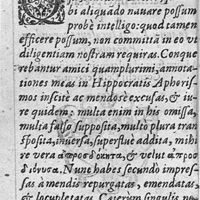 bi aliquādo nauare possum
probè intelligo: quod tamen
efficere possum, non committā in eo vt
diligentiam nostram requiras. Conque
rebantur amici quamplurimi, annota
tiones meas in Hippocratis Aphoris
mos inscitè ac mendosè excusas, & iu
re quidem: multa enim in his omissa,
multa falso supposita, multo plura tran
sposita, inuersa, superfluè addita, mihi
re vera ἀπροσδόκητα, & velut ἀπροσ
διόνυσα. Nunc habes secundò impres
sas à mendis repurgatas, emendatas,
& locupletatas. Cæterùm singulis ne